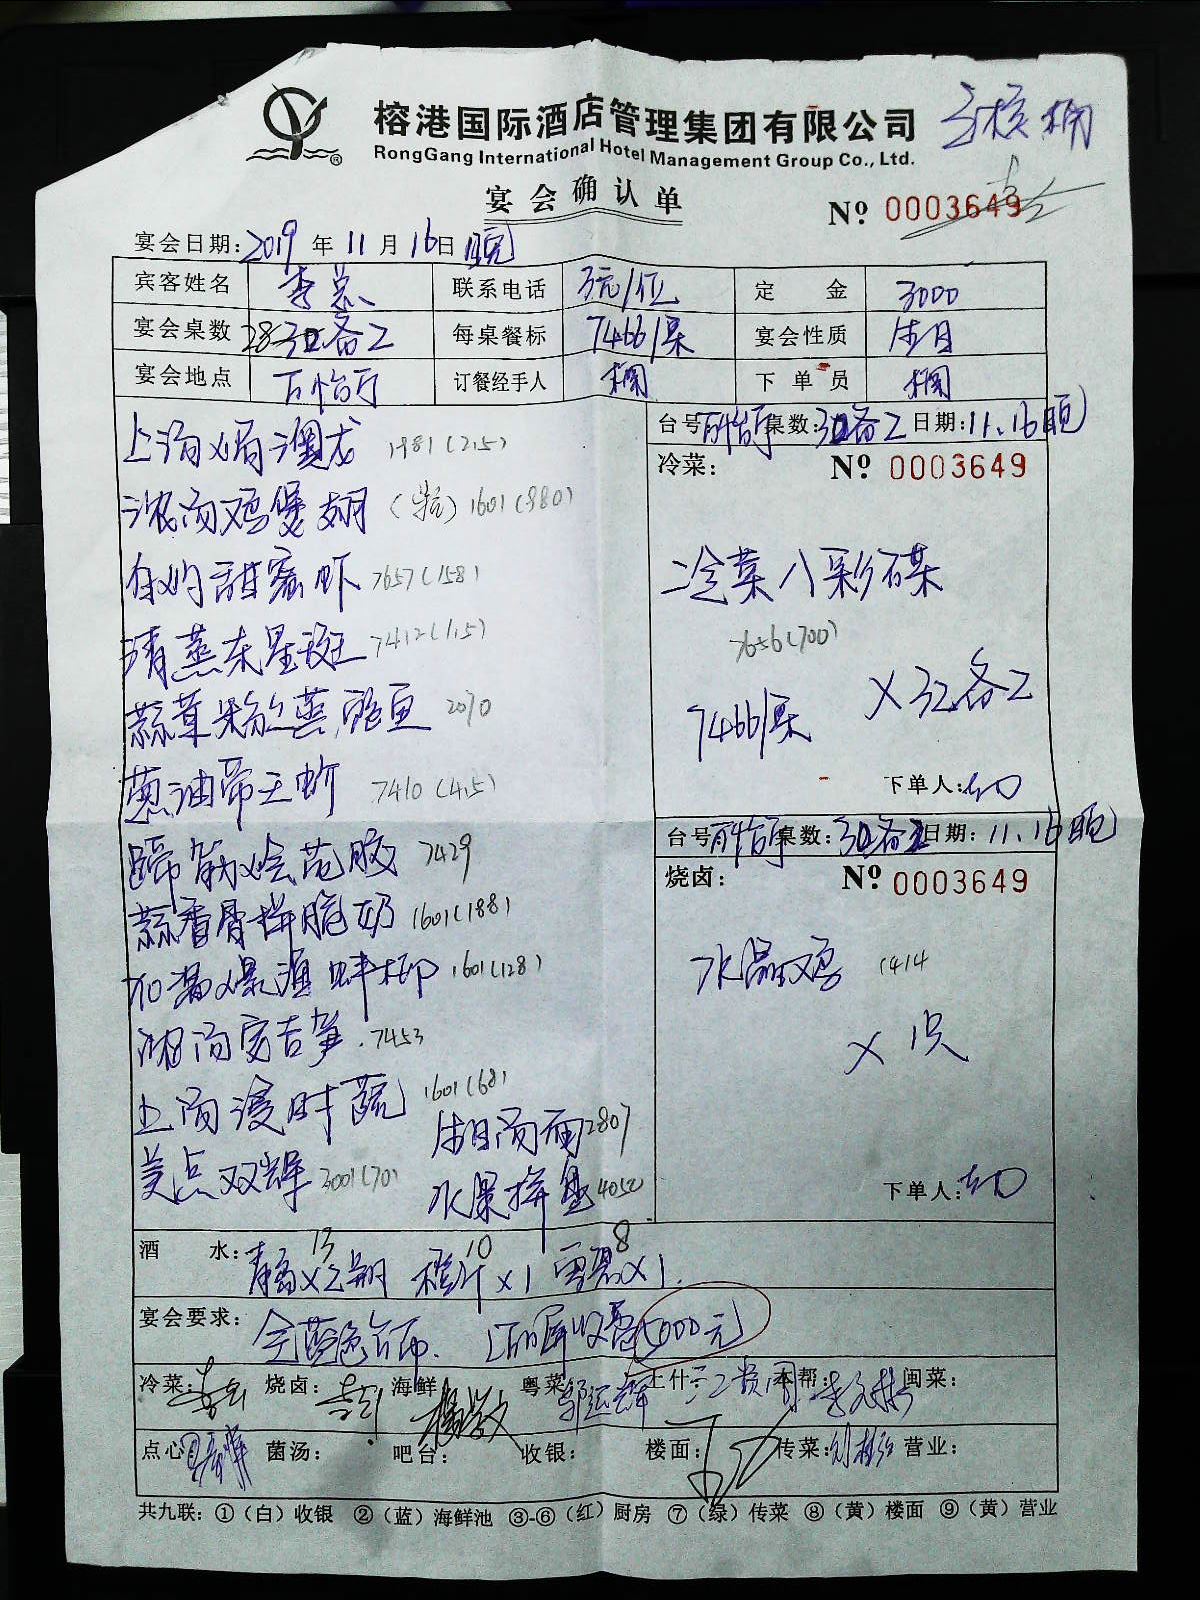 榕港国际酒店管理集团有限公司
RongGang International Hotel Management Group Co., Ltd.
已核 榈
宴会确认单
№ 0003649
宴会日期: 2019 年 11 月 16 日 晚
宾客姓名 李总 联系电话 3元/位 定金 3000
宴会桌数 28 30备2 每桌餐标 7466/桌 宴会性质 生日
宴会地点 百怡厅 订餐经手人 下单员
上汤焗澳龙 1981(215)
浓汤鸡煲翅 1601(880)
白灼甜蜜虾 7657(158)
清蒸东星斑 7412(1.5)
蒜茸粉丝蒸鲍鱼 2070
葱油帝王蚧 7410(4.5)
蹄筋烩花胶 7429
蒜香骨拼脆奶 1601(188)
XO酱爆渔蚌柳 1601(128)
浓汤富吉笋 7453
上汤浸时蔬 1601(68)
美点双辉 3001(70)
生日汤面 2807
水果拼盘 4050
台号 百怡厅 桌数: 30备2 日期: 11.16晚
冷菜: № 0003649
冷菜八彩碟
7656(700)
7466/桌 × 30备2
下单人:
台号 百怡厅 桌数: 30备2 日期: 11.16晚
烧卤: № 0003649
水晶鸡 1414
× 1只
下单人:
酒水: ×2 13 橙汁×1 10 雪碧×1 8
宴会要求: 全蓝色台布. 5000元
冷菜: 烧卤: 海鲜 粤菜 上什: 本帮: 闽菜:
点心 菌汤: 吧台: 收银: 楼面: 传菜: 营业:
共九联: ①(白)收银 ②(蓝)海鲜池 ③-⑥(红)厨房 ⑦(绿)传菜 ⑧(黄)楼面 ⑨(黄)营业